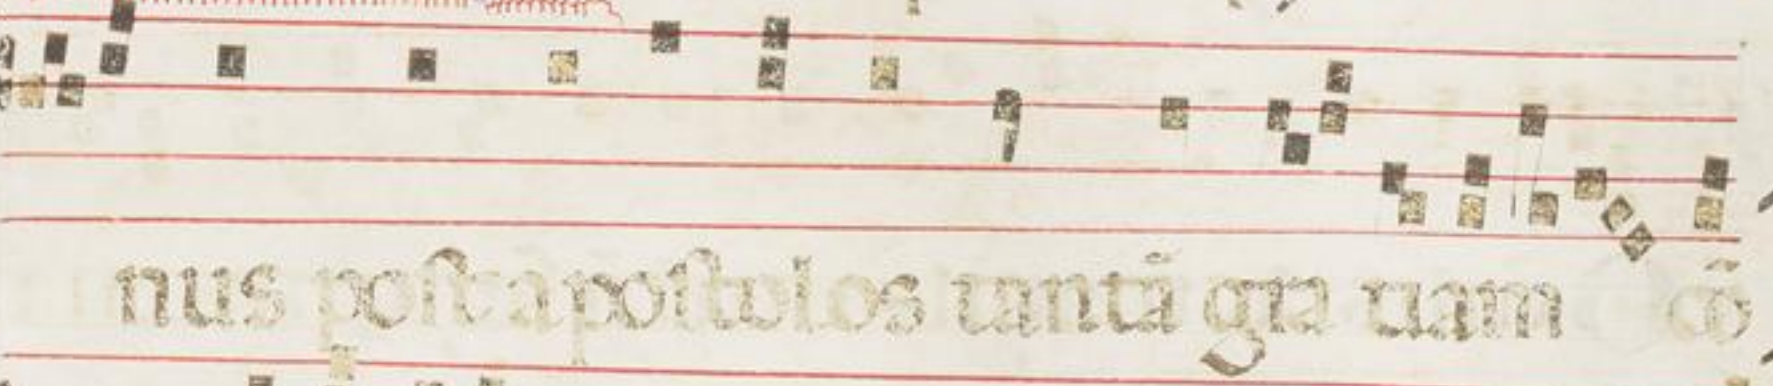 nus post apostolos tantā gra tiam cō